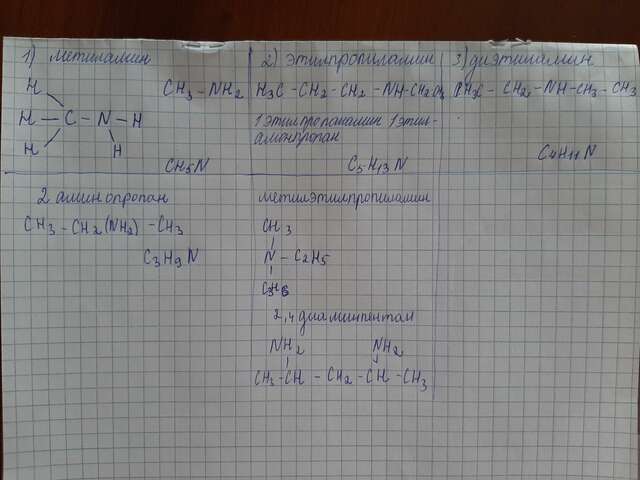 1) метиламин
H
CH3 - NH2
H - C - N - H
H
H
CH5N
2) этилпропиламин
H3C - CH2 - CH2 - NH-CH2
1 этилпропанамин 1 этил-
аминпропан
C5H13N
3) диэтиламин
- CH2 - NH - CH2 - CH3
C4H11N
2 аминопропан
CH3 - CH2(NH2) - CH3
C3H9N
метилэтилпропиламин
CH3
N - C2H5
2,4 диаминпентан
NH2 NH2
CH3 - CH - CH2 - CH - CH3